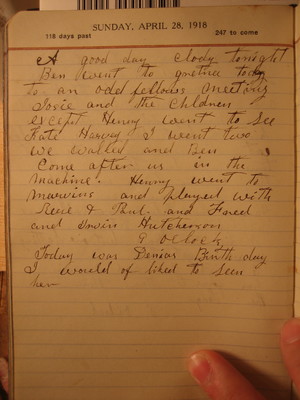 SUNDAY, APRIL 28, 1918
118 days past 247 to come
A good day Clody tonight
Ben went to gretna today
to an odd fellows meeting
Josie and the Children
except Henry went to see
Kate Harvey I went two
we walked and Ben
Come after us in the
machine. Henry went to
Marvins and played with
Reed & Paul. and Fored
and Irwin Hutcherson
9 Oclock,
Today was Birth day
I would of liked to Seen
her